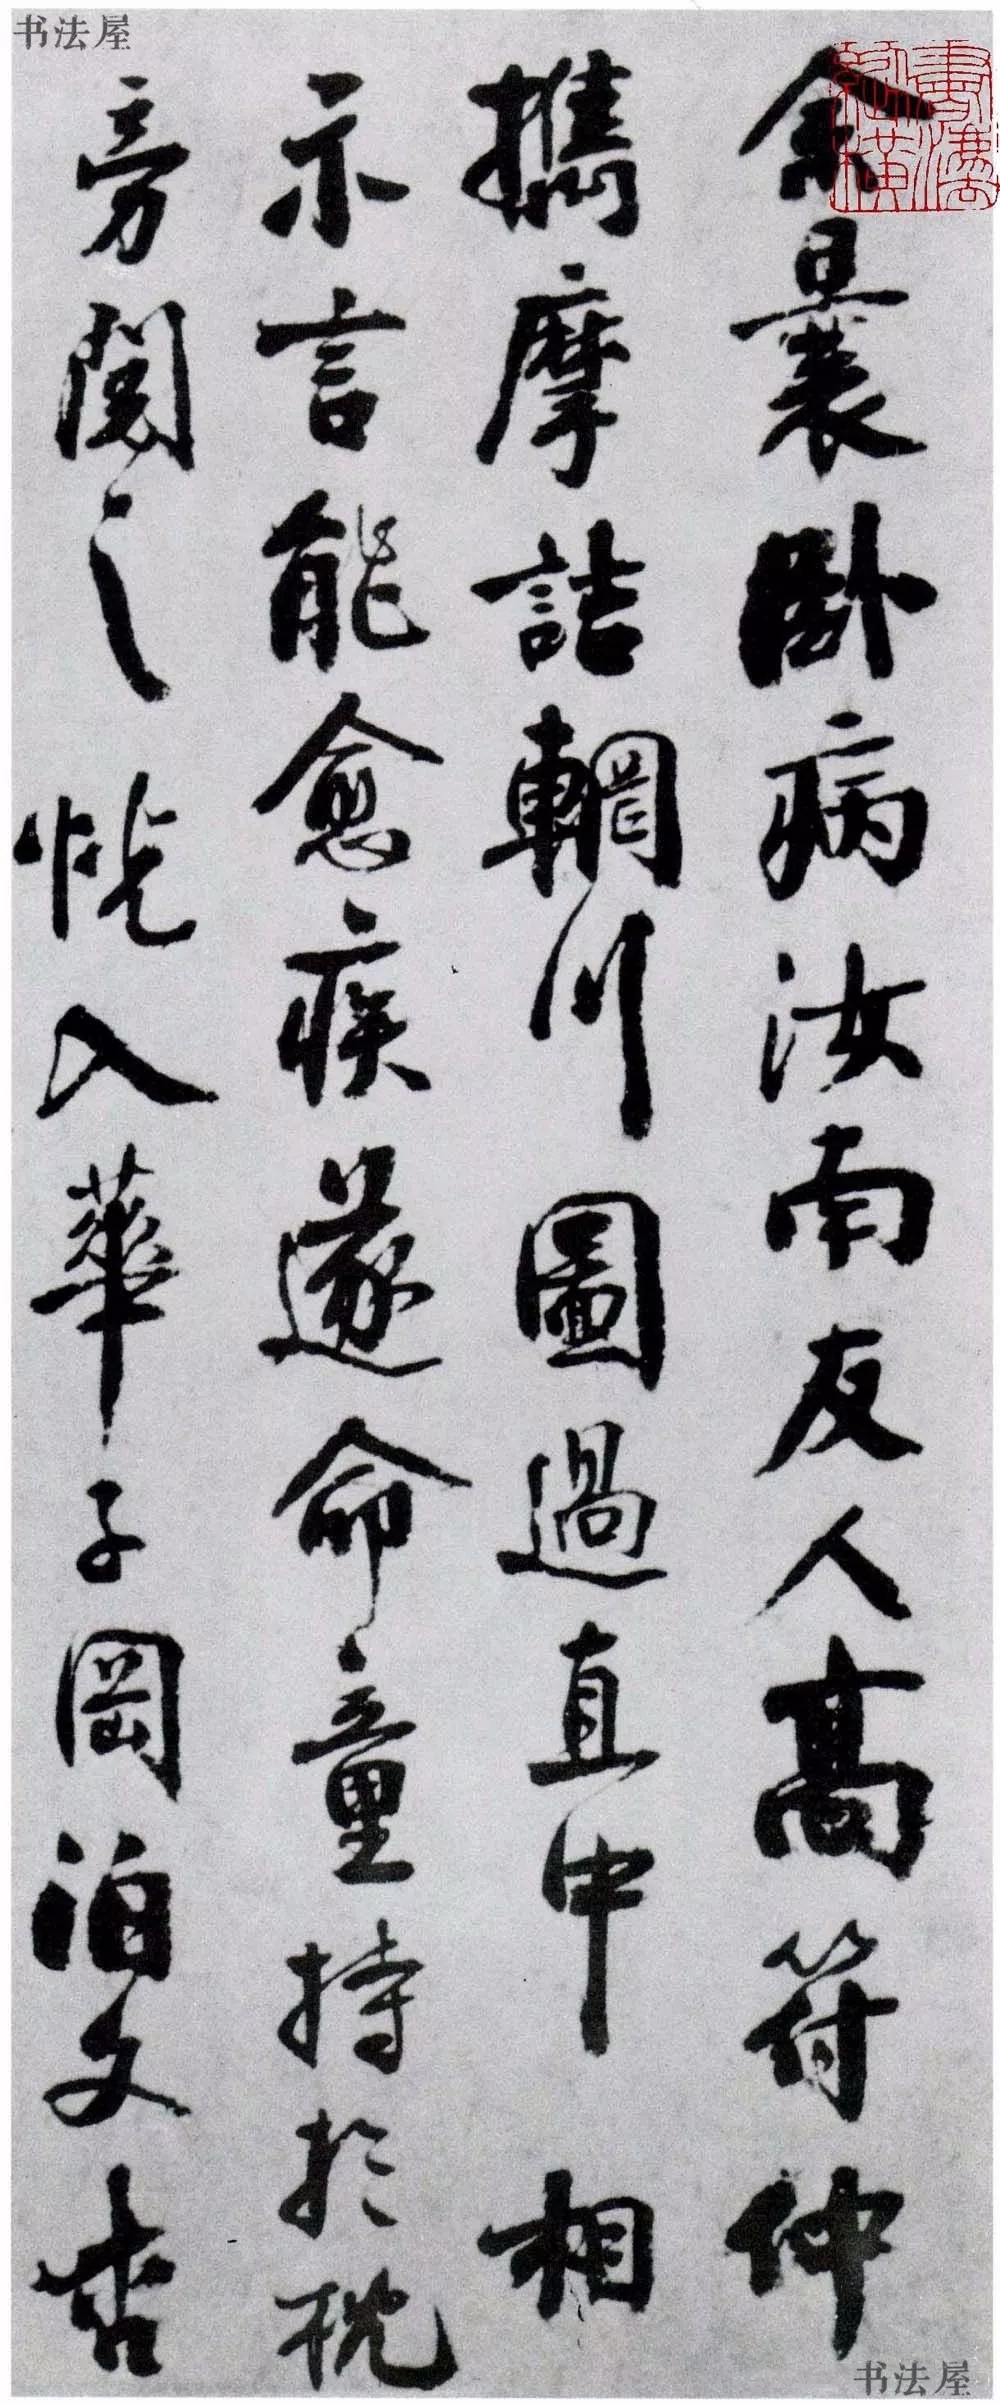 书法屋
書灋縱橫
余曩臥病汝南友人髙符仲
攜摩詰輞川圖過直中相
示言能愈疾遂命童持於枕
旁閱之恍入華子岡泊文杏
书法屋